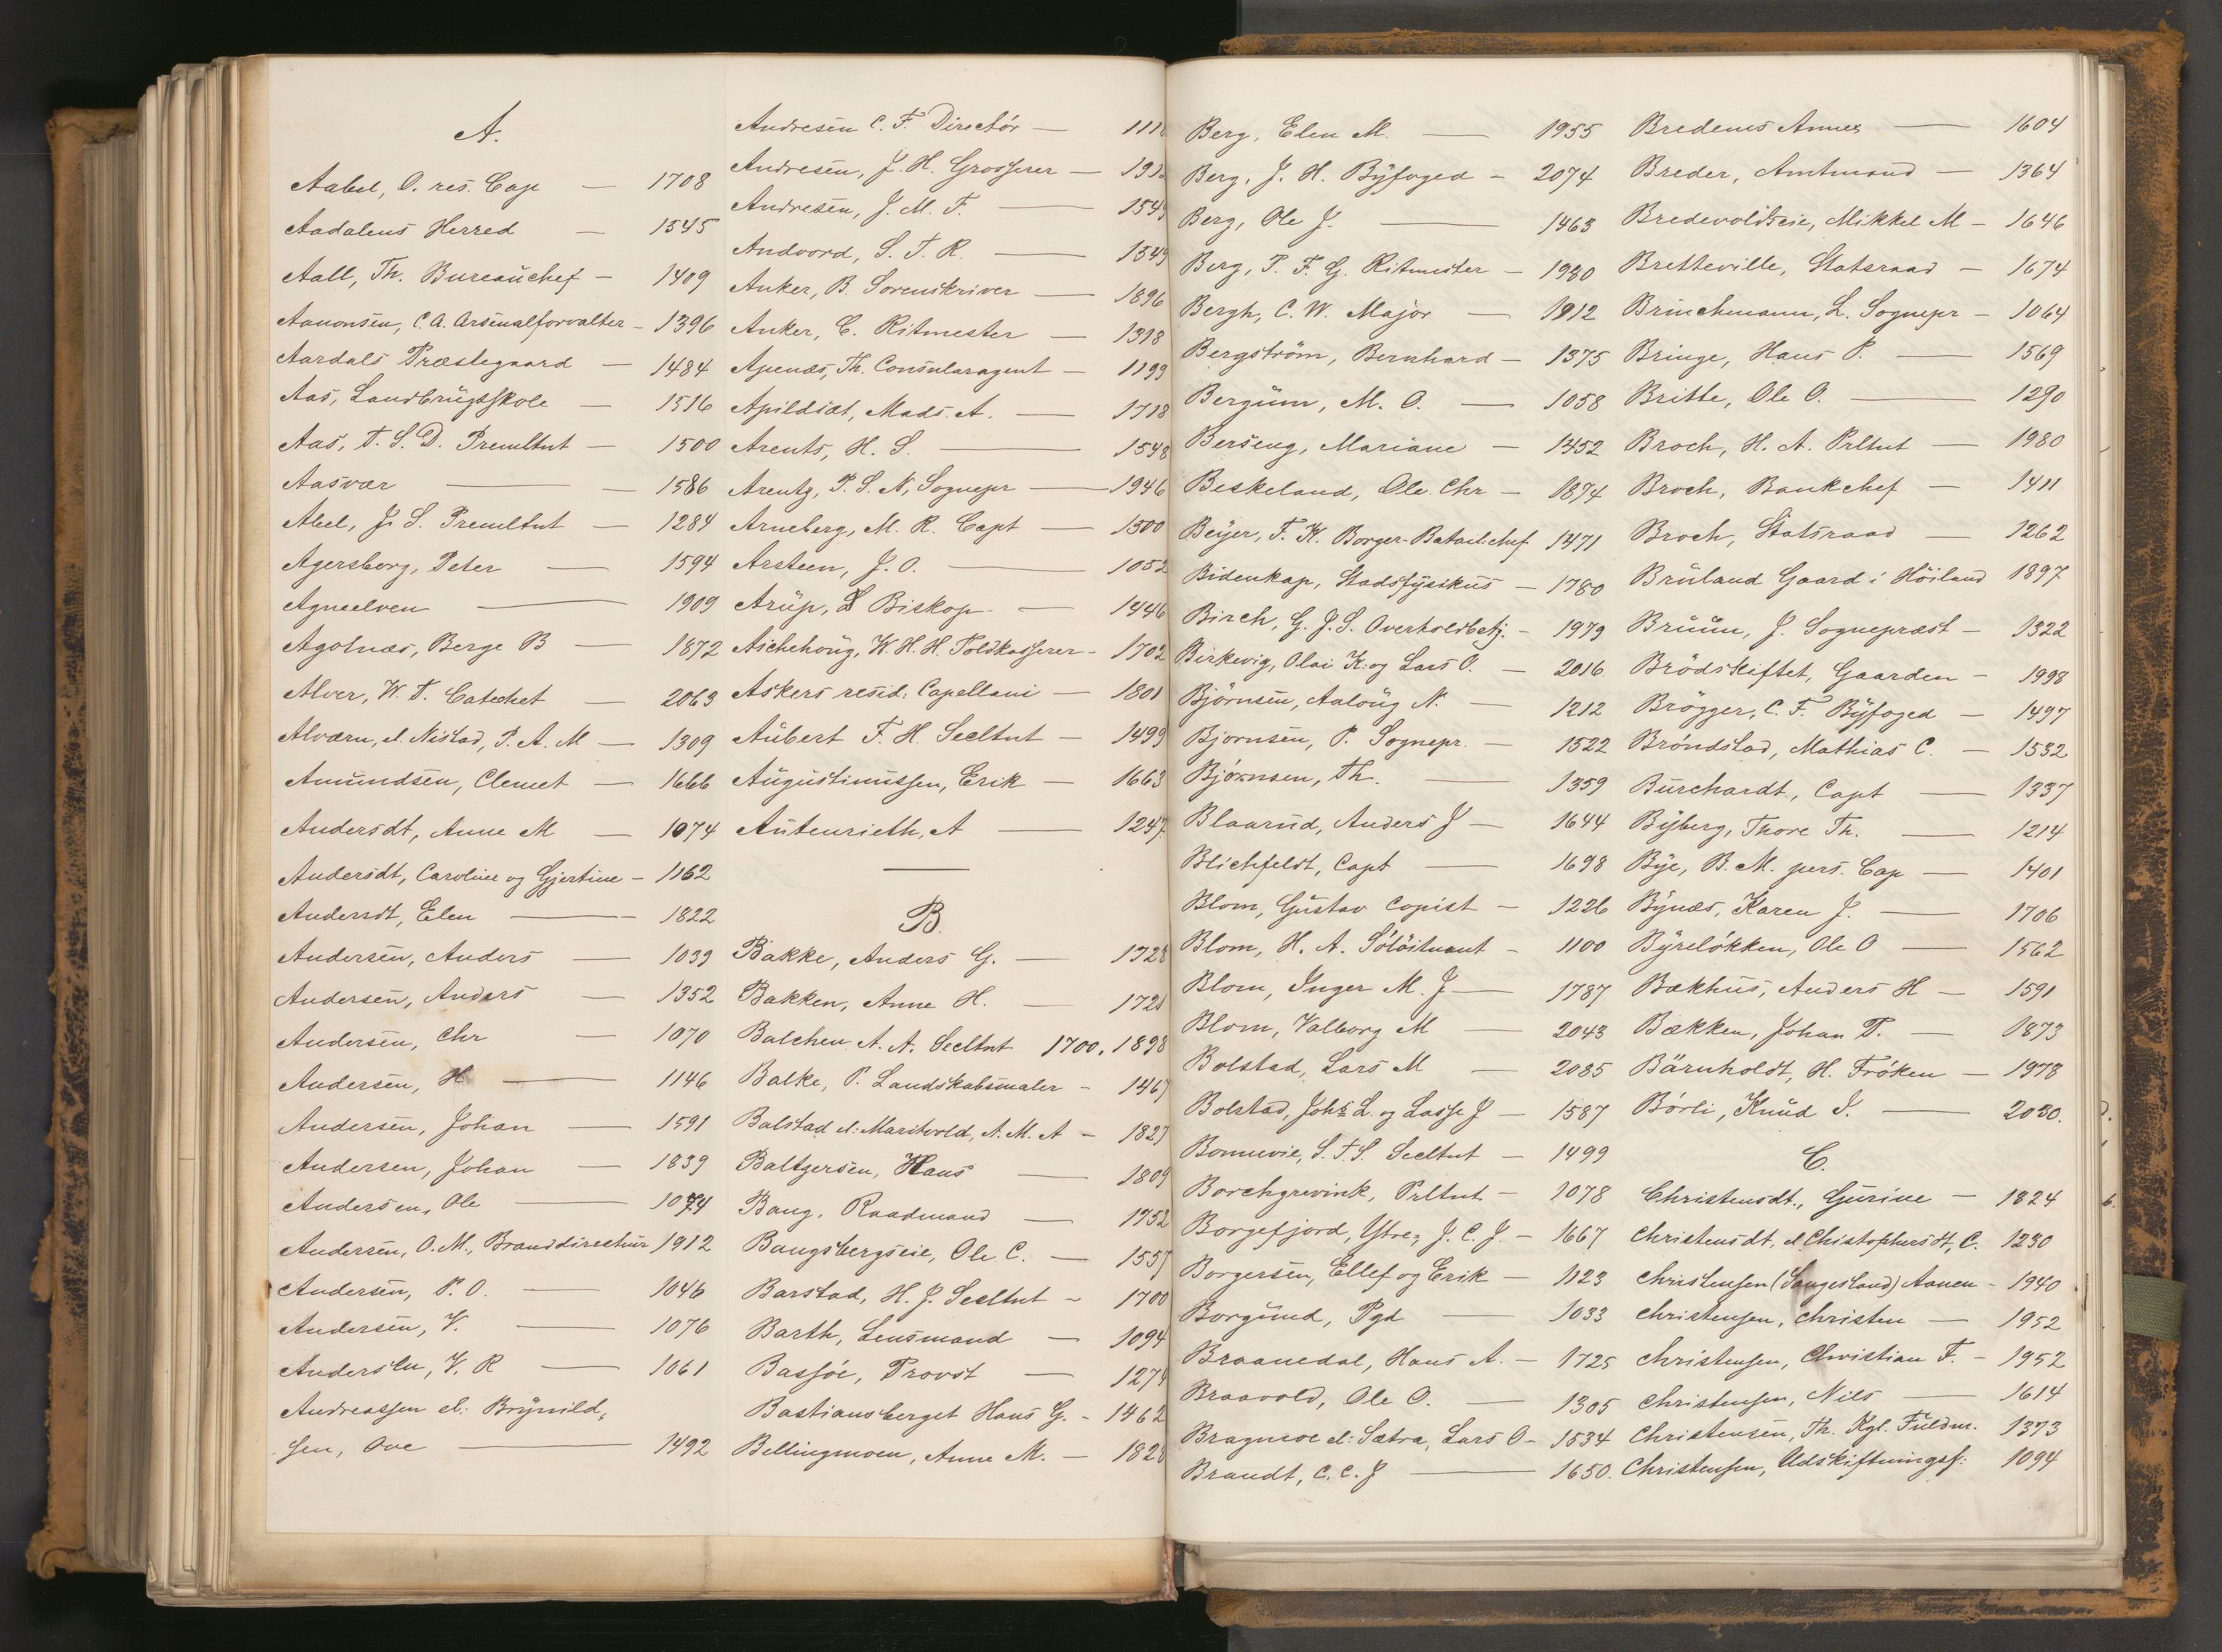 A.
Aabel, O. res. Cap — 1708
Aadalens Herred — 1545
Aall, Th. Bureauchef — 1409
Aanonsen, C. A. Arsenalforvalter — 1396
Aardals Præstegaard — 1484
Aas, Landbrugsskole — 1516
Aas, T. S. D. Premltnt — 1500
Aasvær — 1586
Abel, J. S. Premltnt — 1284
Agersborg, Peter — 1594
Agneelven — 1909
Agotnæs, Berge B — 1872
Alver, W. T. Catechet — 2063
Alværn, el. Nistad, P. A. M — 1309
Amundsen, Clemet — 1666
Andersdt, Anne M — 1074
Andersdt, Caroline og Gjertine — 1162
Andersdt, Elen — 1822
Andersen, Anders — 1039
Andersen, Anders — 1352
Andersen, Chr — 1070
Andersen, H — 1146
Andersen, Johan — 1591
Andersen, Johan — 1839
Andersen, Ole — 1074
Andersen, O. M., Branddirecteur 1912
Andersen, P. O. — 1046
Andersen, V. — 1076
Andersen, V. R — 1061
Andreassen el: Brynild,
sen, Ove — 1492
Andresen C. F. Directör — 111
Andresen, J. H. Grosserer — 191
Andresen, J. M. F. — 154
Andvord, S. T. R. — 1549
Anker, B. Sorenskriver — 1896
Anker, C. Ritmester — 1318
Apenæs, Th. Consularagent — 1199
Apildsæt, Mads. A. — 1718
Arents, H. S. — 1548
Arentz, P. S. N, Sognepr — 1946
Arneberg, M. R. Capt — 1500
Arsteen, J. O. — 1052
Arup, Biskop — 1446
Aschehoug, W. H. H. Toldkasserer — 1702
Askers resid: Capellani — 1801
Aubert F. H. Secltnt — 1499
Augustinussen, Erik — 1663
Autenrieth, A — 1247
B.
Bakke, Anders G. — 1728
Bakken, Anne H. — 1728
Balchen A. A. Secltnt 1700, 1898
Balke, P. Landskabsmaler — 1467
Balstad el: Maritvold, A. M. A — 1827
Baltzersen, Hans — 1809
Bang, Raadmand — 1752
Bangsbergseie, Ole C. — 1557
Barstad, H. J. Secltnt — 1700
Barth, Lensmand — 1094
Bassöe, Provst — 127
Bastiansberget Hans G. — 1462
Bellingmoen, Anne M. — 1828
Berg, Elen M. — 1955
Berg, J. H. Byfoged — 2074
Berg, Ole J. — 1463
Berg, P. F. G. Ritmester — 1980
Bergh, C. W. Major — 1912
Bergström, Bernhard — 1375
Bergum, M. O. — 1058
Berseng, Mariane — 1452
Beskeland, Ole Chr — 1874
Beyer, F. K. Borger-Batail: chef 1471
Bidenkap, Stadsfysikus — 1780
Birch, G. J. S. Overtoldbetj. — 1979
Birkevig, Olai K: og Lars O. — 2016
Björnsen, Aaloug N. — 1212
Bjornsen, P. Sognepr. — 1522
Björnsen, Th. — 1359
Blaarud, Anders J — 1644
Blichfeldt, Capt — 1698
Blom, Gustav Copist — 1226
Blom, H. A. Sölöitnant — 1100
Blom, Inger M. J — 1787
Blom, Valborg M — 2043
Bolstad, Lars M — 2085
Bolstad, Johs L. og Lasse J — 1587
Bonnevie, S. T. S. Secltnt — 1499
Borchgrevink, Prltnt — 1078
Borgefjord, Ytre, J. C. J. — 1667
Borgersen, Ellef og Erik — 1123
Borgund, Pgd — 1033
Braanedal, Hans A. — 1725
Braavold, Ole O. — 1305
Bragneoe el: Sætra, Lars O — 1534
Brandt, C. C. J — 1650.
Bredenes Annex — 1604
Breder, Amtmand — 1364
Bredevoldseie, Mikkel M — 1646
Bretteville, Statsraad — 1674
Brinchmann, L. Sognepr — 1064
Bringe, Hans P. — 1569
Britte, Ole O. — 1290
Broch, H. A. Prltnt — 1980
Broch, Bankchef — 1411
Broch, Statsraad — 1262
Bruland Gaard i Höiland 1897
Bruun, J. Sognepræst — 1322
Brödskiftet, Gaarden — 1998
Brögger, C. F. Byfoged — 1497
Bröndstad, Mathias C. — 1532
Burchardt, Capt — 1337
Byberg, Thore Th. — 1214
Bye, B. M. pers. Cap — 1401
Bynæs, Karen J. — 1706
Byrelökken, Ole O — 1562
Bækhus, Anders H — 1591
Bækken, Johan T. — 1873
Bärnholdt, H. Fröken — 1978
Börli, Knud I. — 2030.
C.
Christensdt., Gurine — 1824
Christensdt, el Chistophersdt, C. 1230
Christensen (Sangesland) Aanen — 1940
Christensen, Christen — 1952
Christensen, Christian F. — 1952
Christensen, Nils — 1614
Christensen, Th. Kgl. Fuldm. 1373
Christensen, Udskiftningsf: 1094